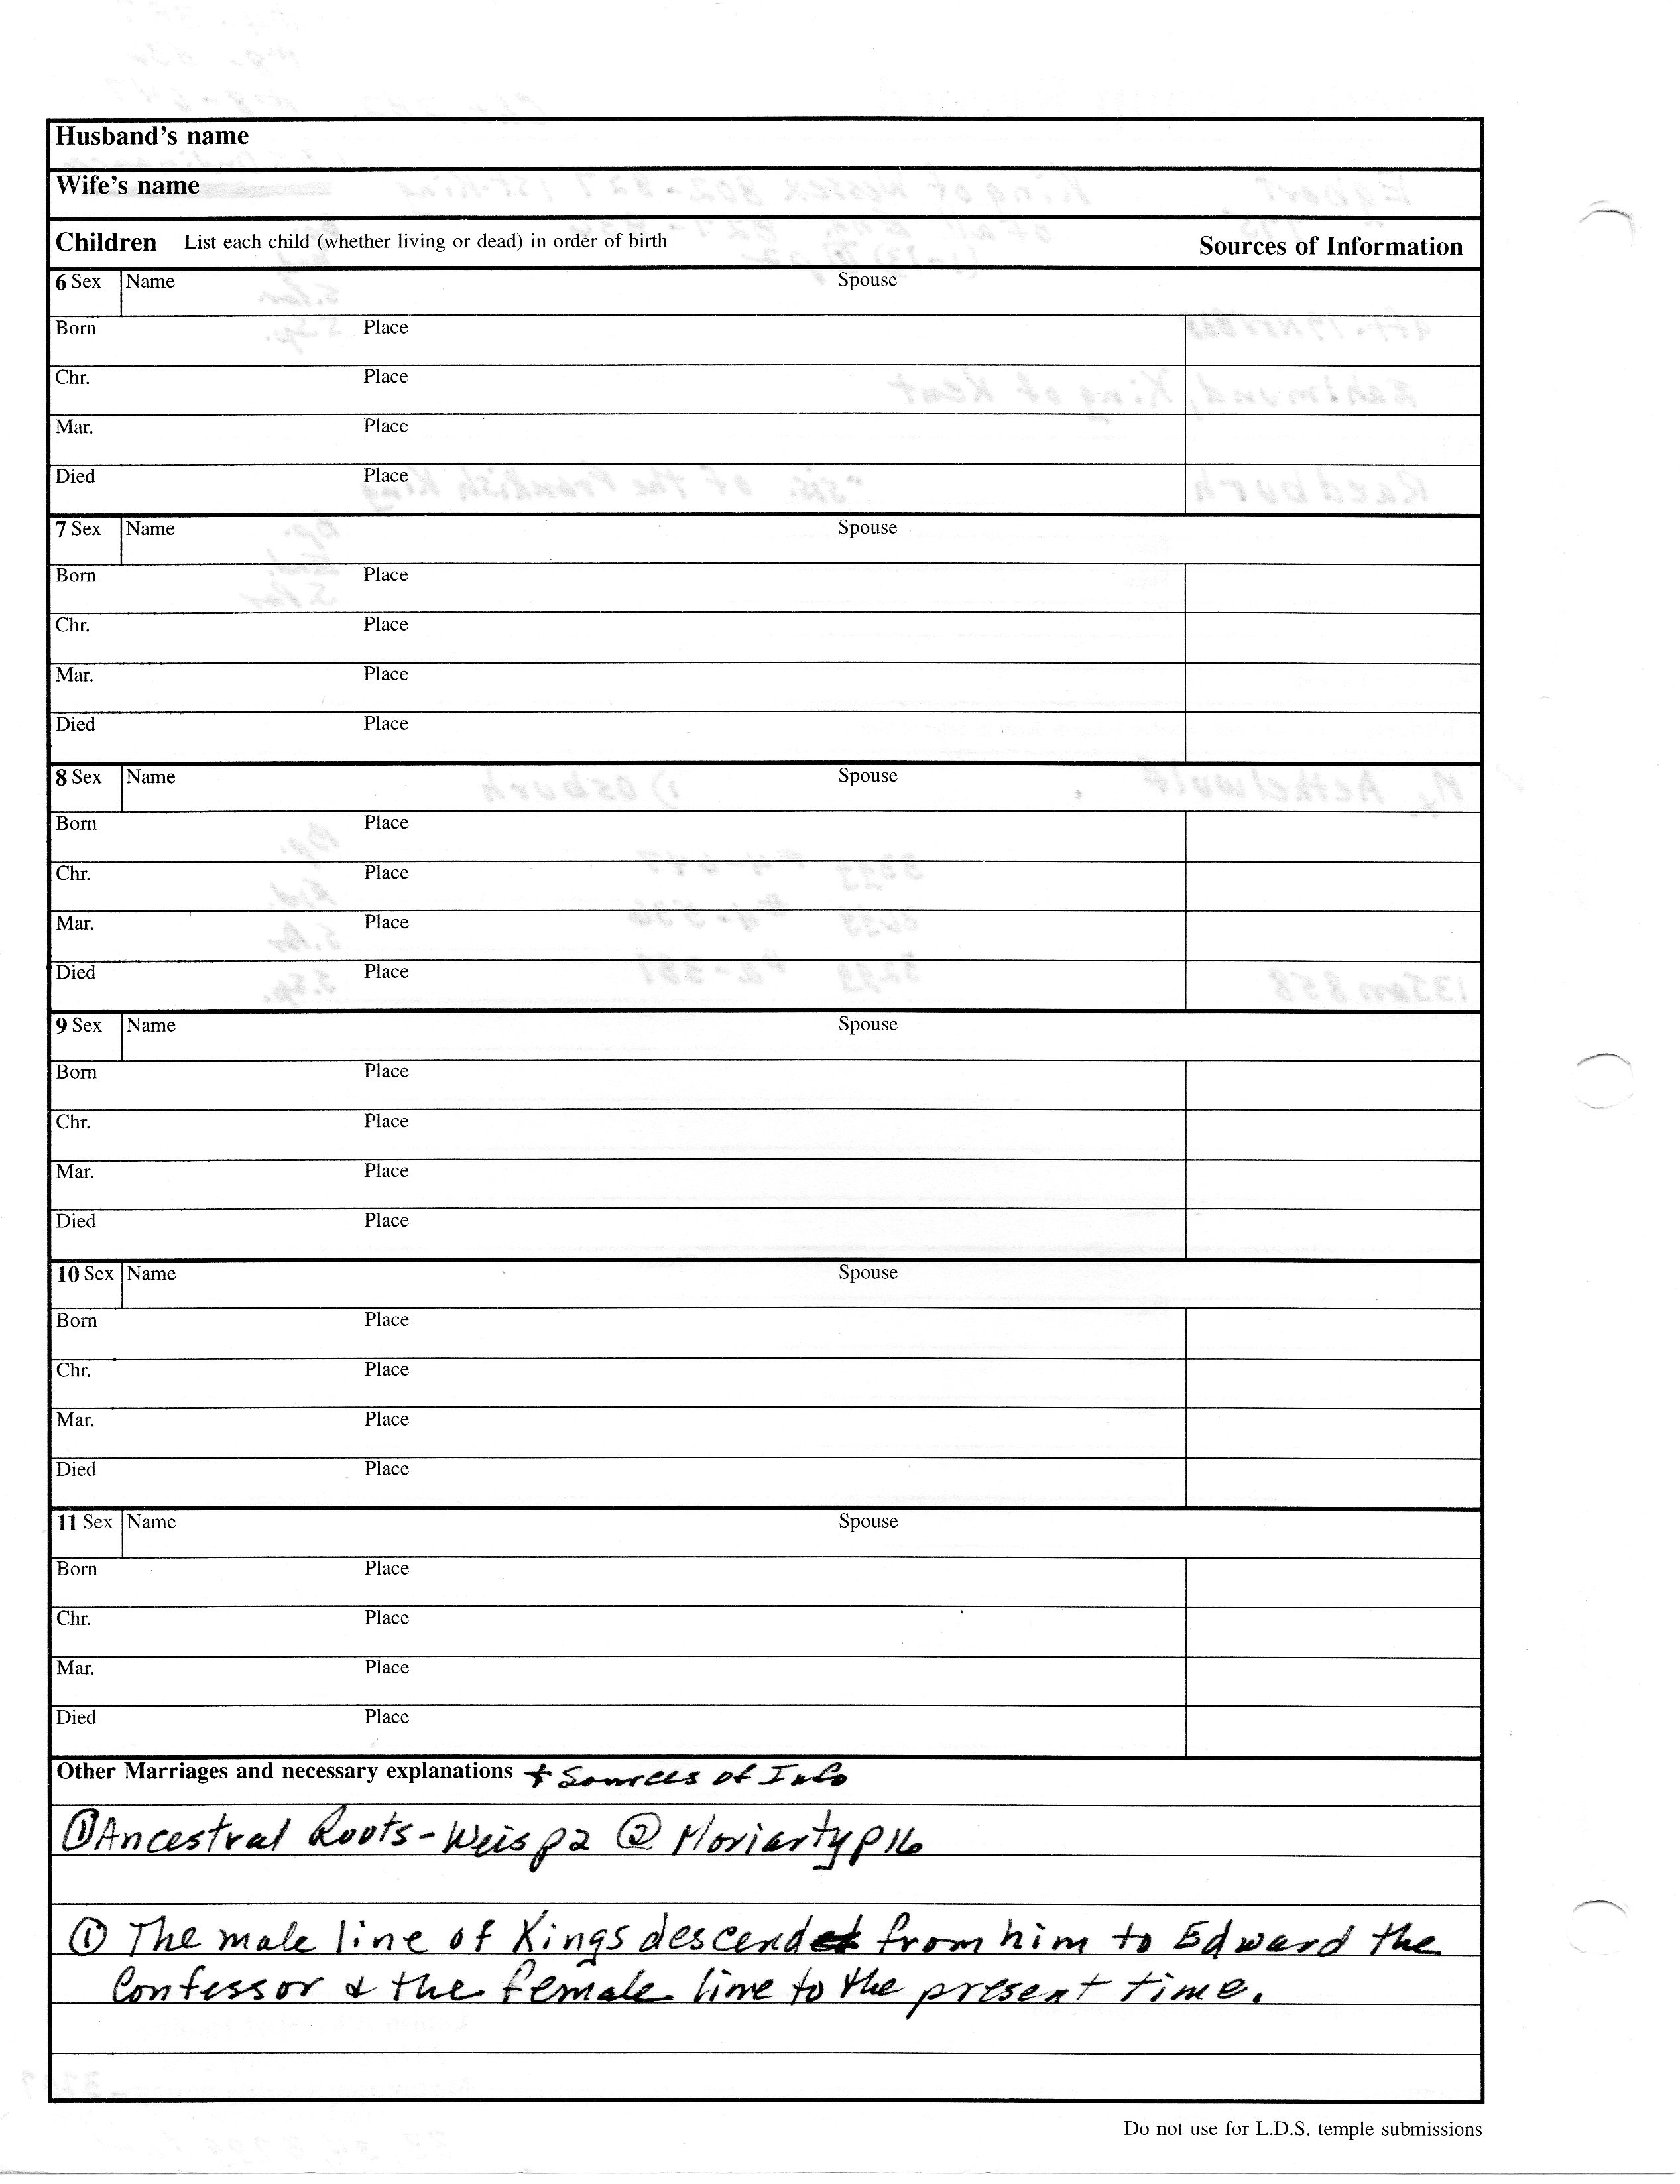 Husband's name
Wife's name
Children List each child (whether living or dead) in order of birth Sources of Information
6 Sex Name Spouse
Born Place
Chr. Place
Mar. Place
Died Place
7 Sex Name Spouse
Born Place
Chr. Place
Mar. Place
Died Place
8 Sex Name Spouse
Born Place
Chr. Place
Mar. Place
Died Place
9 Sex Name Spouse
Born Place
Chr. Place
Mar. Place
Died Place
10 Sex Name Spouse
Born Place
Chr. Place
Mar. Place
Died Place
11 Sex Name Spouse
Born Place
Chr. Place
Mar. Place
Died Place
Other Marriages and necessary explanations + Sources of Info
① Ancestral Roots - Weis p2 ② Moriarty p16
① The male line of Kings descended from him to Edward the
Confessor & the female line to the present time.
Do not use for L.D.S. temple submissions